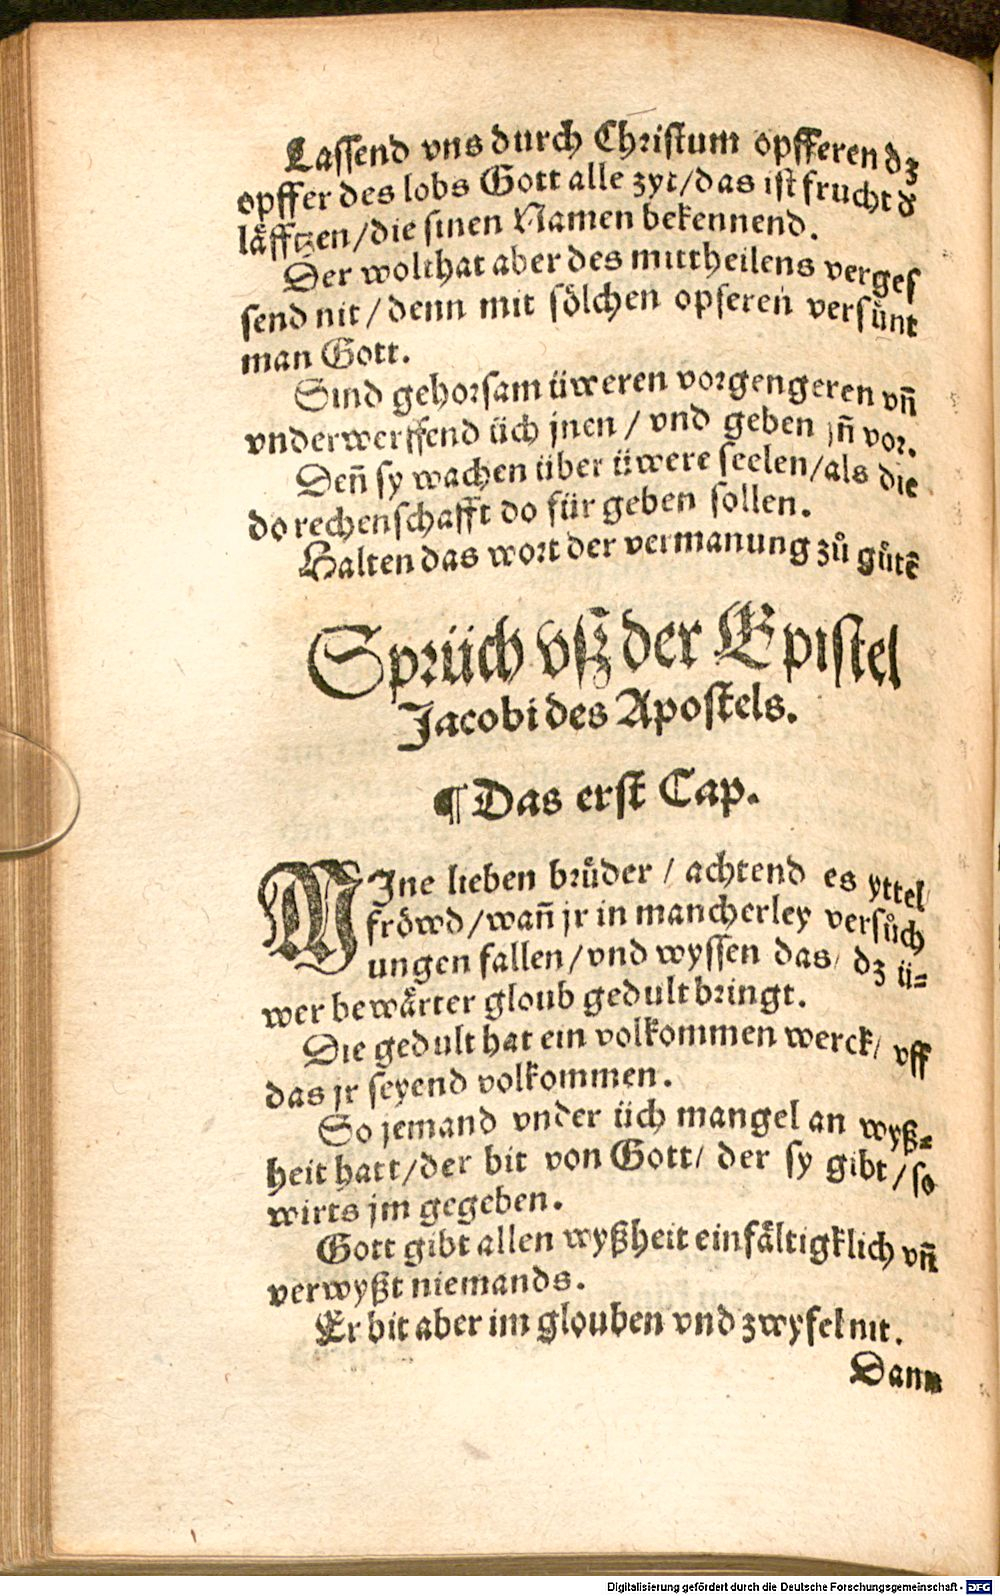 Lassend vns durch Christum opfferen dz
opffer des lobs Gott alle zyt/das ist frucht d̕
läfftzen/die sinen Namen bekennend.
Der wolthat aber des mittheilens verges
send nit/denn mit sölchen opferen versůnt
man Gott.
Sind gehorsam üweren vorgengeren vn̄
vnderwerffend üch jnen/vnd geben jn̄ vor.
Den̄ sy wachen über üwere seelen/als die
do rechenschafft do für geben sollen.
Halten das wort der vermanung zů gůtē
Sprüch vß der Epistel
Jacobi des Apostels.
¶Das erst Cap.
MJne lieben brůder/achtend es yttel
fröwd/wan̄ jr in mancherley versůch
ungen fallen/vnd wyssen das/dz ü⸗
wer bewärter gloub gedult bringt.
Die gedult hat ein volkommen werck/vff
das jr seyend volkommen.
So jemand vnder üch mangel an wyß⸗
heit hatt/der bit von Gott/der sy gibt/so
wirts jm gegeben.
Gott gibt allen wyßheit einfältigklich vn̄
verwyßt niemands.
Er bit aber im glouben vnd zwyfel nit.
Dann
Digitalisierung gefördert durch die Deutsche Forschungsgemeinschaft - DFG